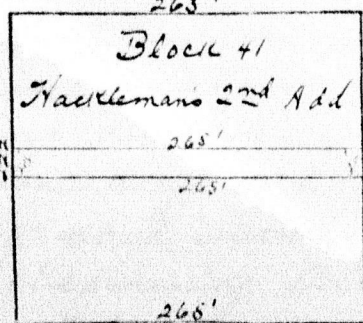 265'
Block 41
Hackleman's 2nd Add
265'
265'
265'